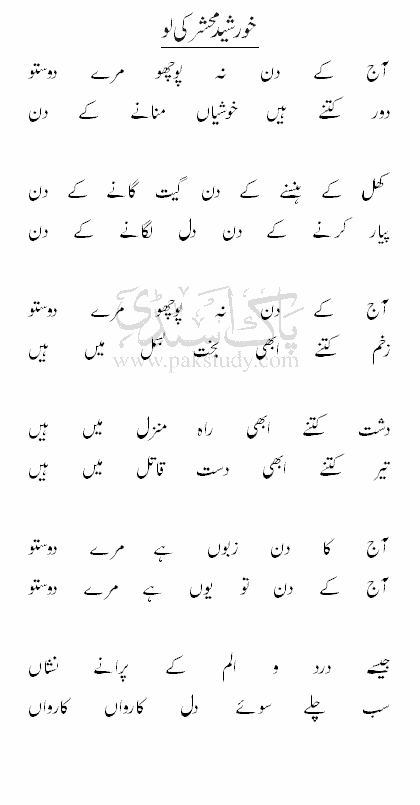 خورشیدِ محشر کی لو
آج کے دن نہ پوچھو مرے دوستو
دور کتنے ہیں خوشیاں منانے کے دن
کھل کے ہنسنے کے دن گیت گانے کے دن
پیار کرنے کے دن دل لگانے کے دن
آج کے دن نہ پوچھو مرے دوستو
زخم کتنے ابھی بختِ بسمل میں ہیں
پاک اسٹڈی
www.pakstudy.com
دشت کتنے ابھی راہ منزل میں ہیں
تیر کتنے ابھی دست قاتل میں ہیں
آج کا دن زبوں ہے مرے دوستو
آج کے دن تو یوں ہے مرے دوستو
جیسے درد و الم کے پرانے نشاں
سب چلے سوئے دل کارواں کارواں